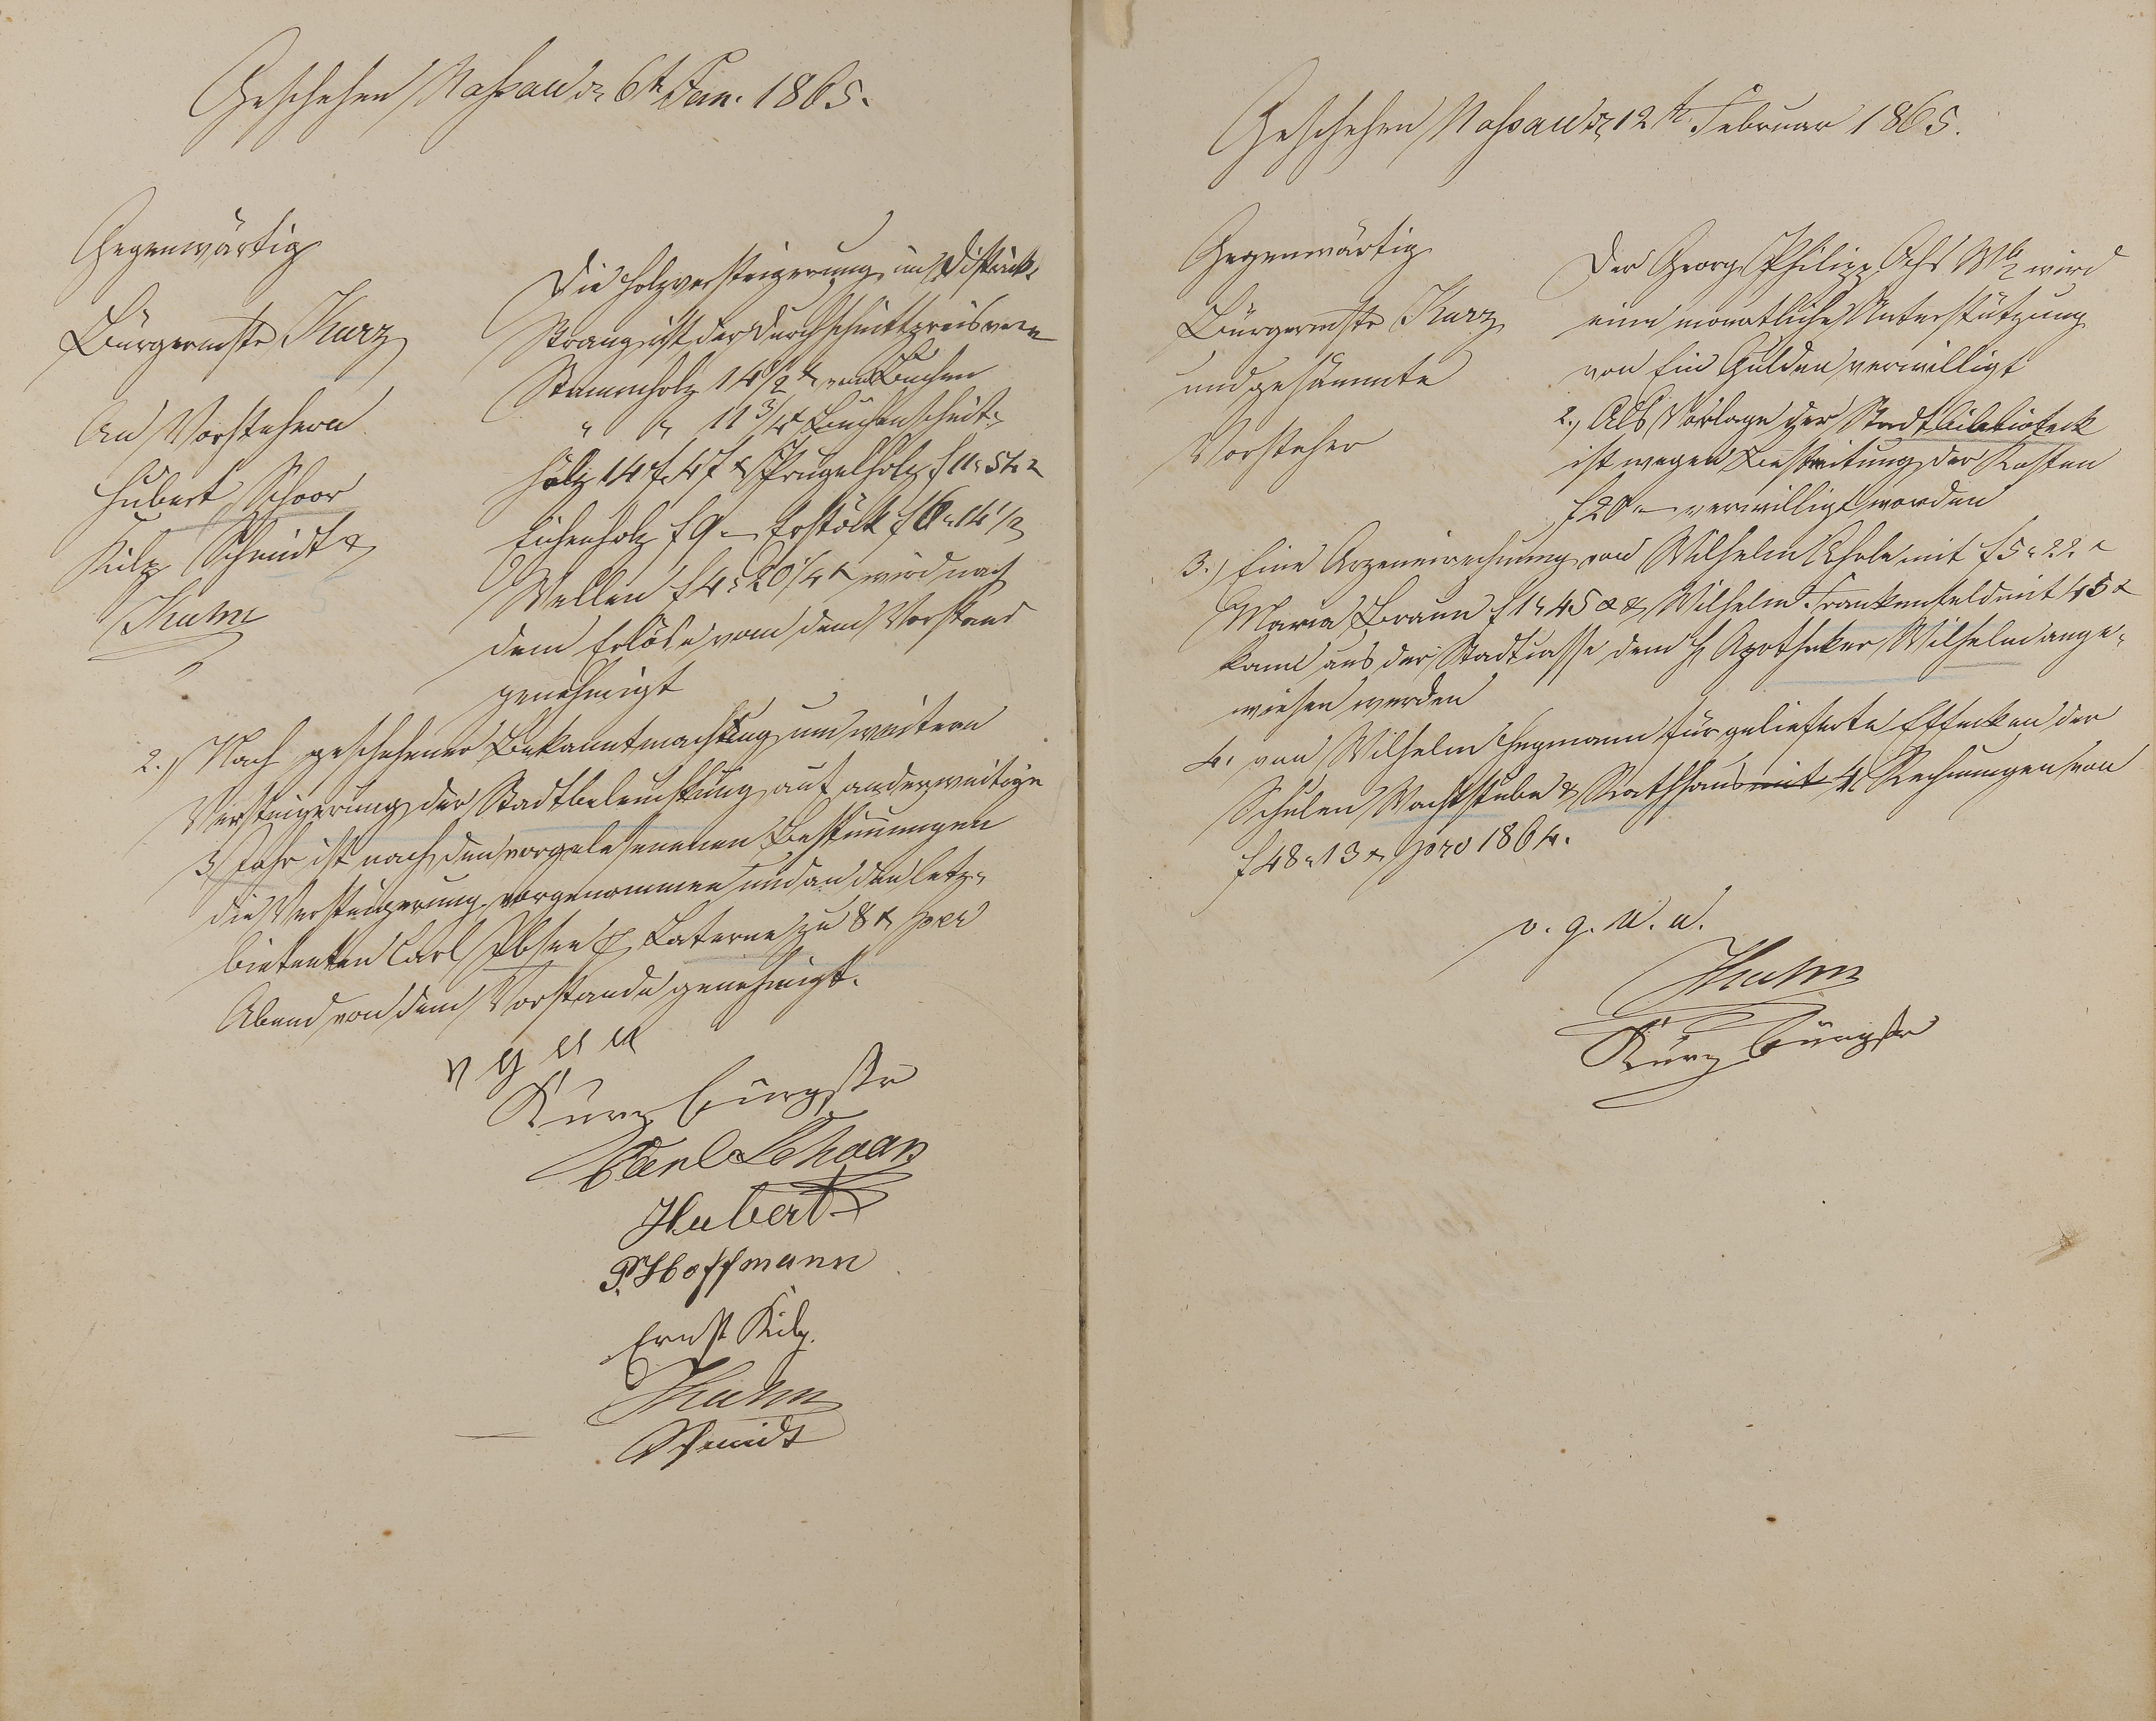 Geschehen Nassau d. 6t Jan. 1865.
Gegenwärtig
Bürgermstr Kurz
An Vorstehern
Hubert, Schoor
Kilp Schmidt &
Thuhn
Die Holzversteigerung im Distrikt
ist der Durchschnittspreis von
Stammholz 14 1/2 x von Buchen
" " 11 3/4 x Buchenscheit-
holz 14 f. 47 x Prügelholz f 11 "
Eichenholz f 9 - f 6 " 14 1/2
Wellen f 4 " 20 1/4 x wird nach
dem Erlöse von dem Vorstand
genehmigt
2.) Nach geschehener Bekanntmachung um weitern
Versteigerung der Stadtbeleuchtung auf anderweitige
3 Jahr ist nach den vorgelesenenen Bestimmungen
die Versteigerung vorgenommen und an den letz-
bietenten Carl p Laterne zu 8 x per
Abend von dem Vorstande genehmigt.
v g u u
Kurz Bürgstr
Carl Schaar
Hubert
P. Hoffmann
Ernst Kilp.
Thuhn
Schmidt
Geschehen Nassau d. 12t. Februar 1865.
Gegenwärtig
Bürgermstr Kurz
und gesammte
Vorsteher
Der Georg Philipp wird
eine monatliche Unterstützung
von Ein Gulden verwilligt
2.) Als Vorlage der Stadtbiblioteck
ist wegen Bestreitung der Kosten
f 20 " - verwilligt worden
3.) Eine Arzeneirechnung von Wilhelm mit f 5 " 22 x
Maria Braun f 1 " 45 x & Wilhelm Frankenfeld mit 45 x
kann aus der Stadtcasse dem H. Apotheker Wilhelm ange-
wiesen werden
4. von Wilhelm Hegmann für gelieferte Effecten der
Schulen Wachtstube & Rathhaus mit 4 Rechnungen von
f 48 " 13 x pro 1864.
v. g. u. u.
Thuhn
Kurz Bürgstr